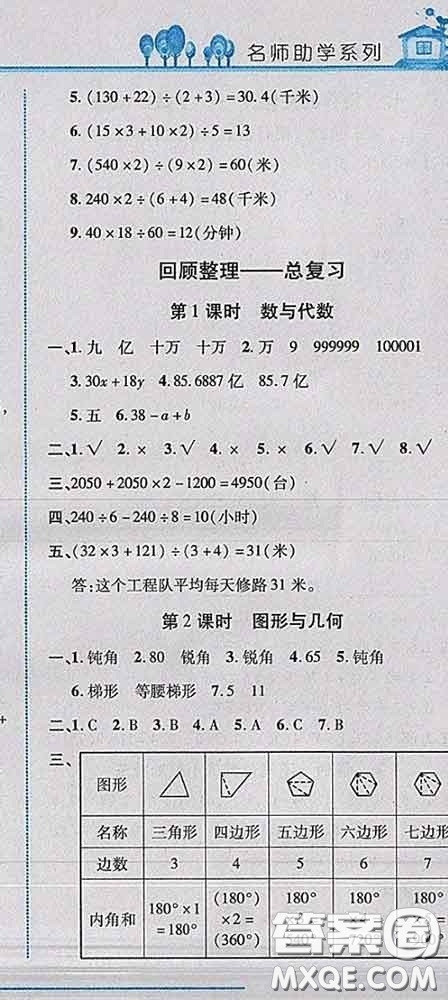 名师助学系列
5. (130+22)÷(2+3)=30.4(千米)
6. (15×3+10×2)÷5=13
7. (540×2)÷(9×2)=60(米)
8. 240×2÷(6+4)=48(千米)
9. 40×18÷60=12(分钟)
回顾整理——总复习
第1课时 数与代数
一、1.九 亿 十万 十万 2.万 9 999999 100001
3.30x+18y 4.85.6887亿 85.7亿
5.五 6.38-a+b
二、1.√ 2.× 3.√ 4.× 5.× 6.√ 7.√ 8.√
三、2050+2050×2-1200=4950(台)
四、240÷6-240÷8=10(小时)
五、(32×3+121)÷(3+4)=31(米)
答:这个工程队平均每天修路31米。
第2课时 图形与几何
一、1.钝角 2.80 锐角 3.锐角 4.65 5.钝角
6.梯形 等腰梯形 7.5 11
二、1.C 2.B 3.A 4.A 5.A 6.C 7.B
三、
图形
名称 三角形 四边形 五边形 六边形 七边形
边数 3 4 5 6 7
内角和 180°×1=180° (180°)×2=(360°) 180° 180° 180°
答案圈
MXQE.COM